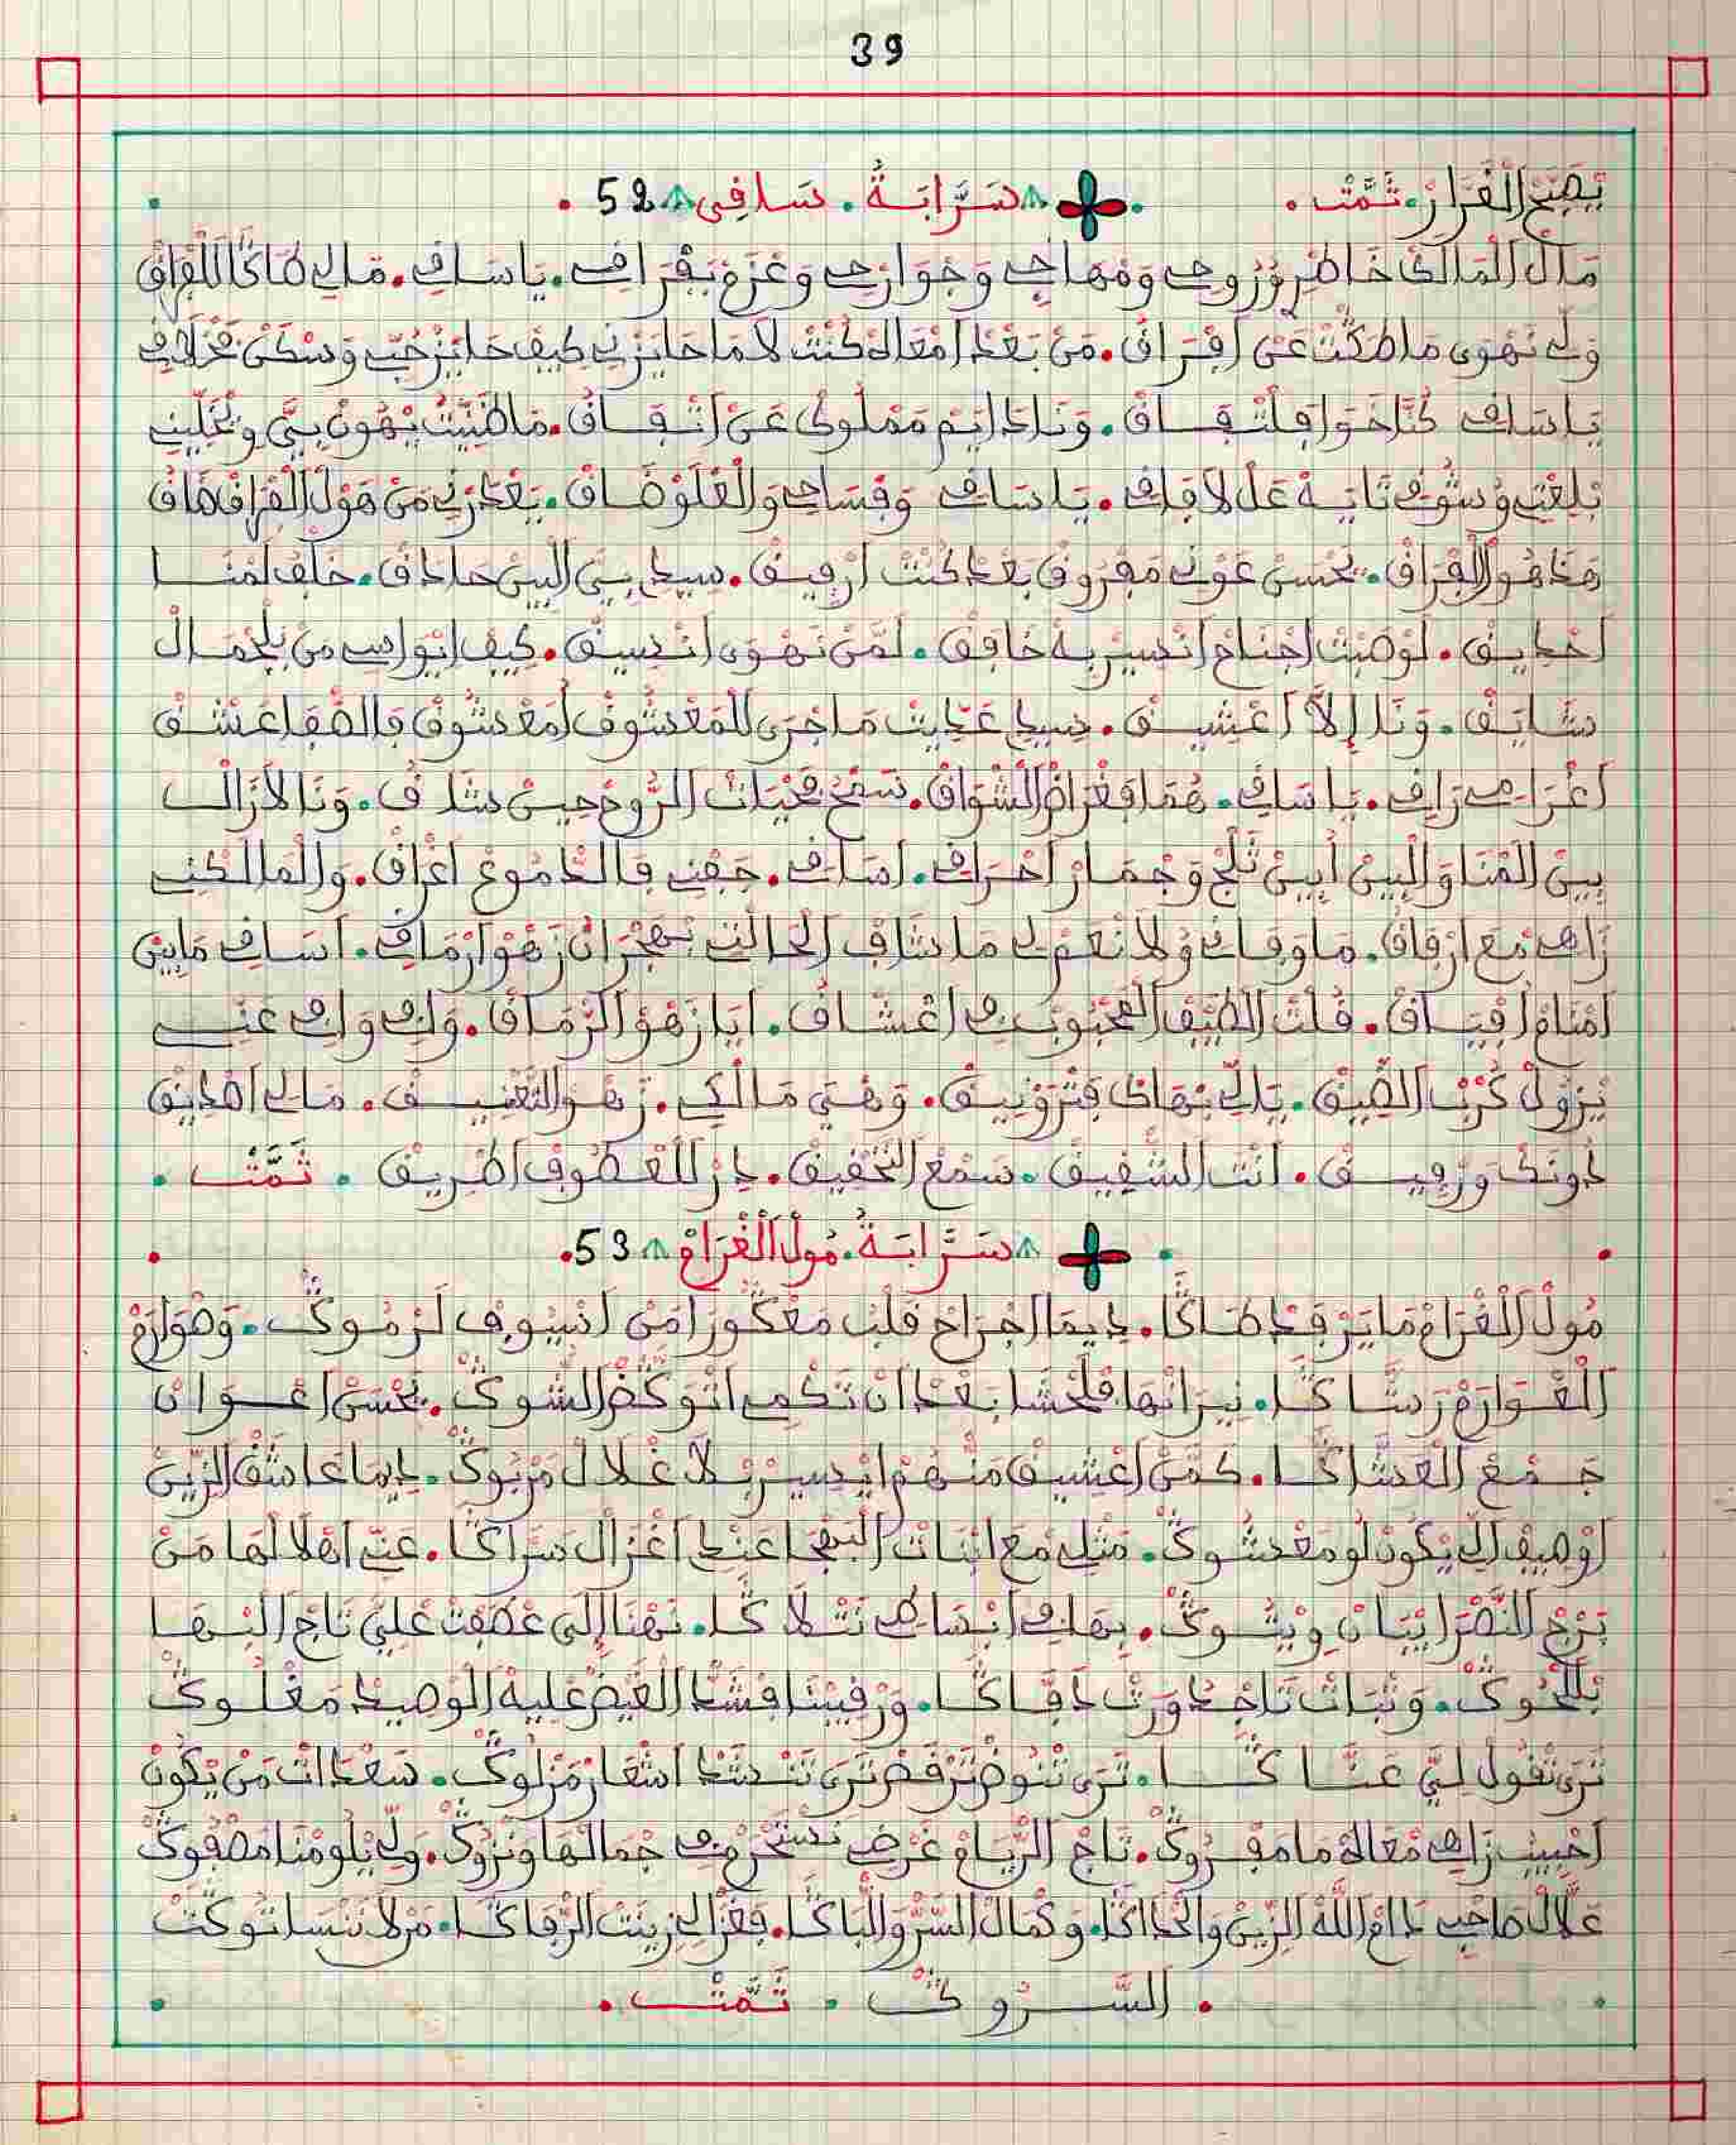 39
يصبح الفرار. تمت. سرابة. ساقي 52.
مال المالك خاطري وروحي ومهاجي وجوارحي وعزم بفراقي. يا ساقي. مالي طاكا للفراق
ولي نهوى ما طكت عن افراق. من بعد امعاه كنت لاما حايزني كيف حايز حب وسكن
يا ساقي كنا خوا فلتفاق. ونا دايم مملوك عن اتفاق. ما ظنيت يهون بي ويخليني
نلغي وشوقي تايه عل لافاق. يا ساقي وقساحي والعلو ضاق. يعدرني من هول الفراق ضاق
هذا هو الفراق. يحسن عوني مفروق بعد كنت ارفيق. سيدي بين البين حاذق. خلف لمنا
احديق. لو صبت اجناح انسير به خافق. لمن نهوى انسيق. كيف ايواسي من بلجمال
شايق. ونا إلا اعشيق. سيدي عديت ما جرى للمعشوق امعشوق فالصفا عشق
اغرامي راقي. يا ساقي. هما فغراض الشواق. سمح محيات الروح حين شاق. ونا لازال
بين الهنا والبين ابين ثلج وجمار احراقي. اساقي. جفني فالدموع اغراق. والمالكني
زاهي مع ارفاق. ما وفاني ولا نعم لي ما شاف الحالتي بهجران زهو ارماقي. اساقي مابين
امنام افياق. قلت الطيف المحبوب في اغساق. ايا زهو الرماق. واقي واقي عني
يزول كرب الضيق. يلي بهاك فترونيق. وهتي مالكي. زهو التعنيق. مالي اصديق
دونك ورفيق. انت الشفيق. سمع التحقيق. در للعطوف اطريق. تمت.
سرابة. مول الغرام 53.
مول الغرام ما يرقد طاكا. ديما اجراح قلب معكورا من اسيوف لرموك. وصوارم
العوارم رشاكا. نيرانها فلحشا بعد ان تكمي اتوكض الشوك. يحسن اعوان
جمع العشاكا. كمن اعشيق منهم ايسير بلا غلال مربوك. ديما عاشق الزين
اوصيف الي يكون لو معشوك. مثلي مع ابنات البهجا عندي اغزال سراكا. عني اهلالها من
برج النصر ايبان ويشوك. بهاه انساهي نتلاكا. نهنا إلى عطفت علي تاج البها
بلحوك. ونبات تاخد ورث دفاكا. ورقيبنا فشد الغيض عليه الوصيد مغلوك
ترى تقول لي عناكا. ترى تنوض ترقض ترى تنشد اشعار مزلوك. سعدات من يكون
احبيب زاهي معاه ما مفروك. تاج الريام غرضي نستحرم في جمالها ونزوك. ولي يلومنا مصفوك
علال صاحب دام الله الزين والحداكا. وكمال السر والباكا. فغزالي زينت الرفاكا. مزلا ننسا توكت
السروك. تمت.